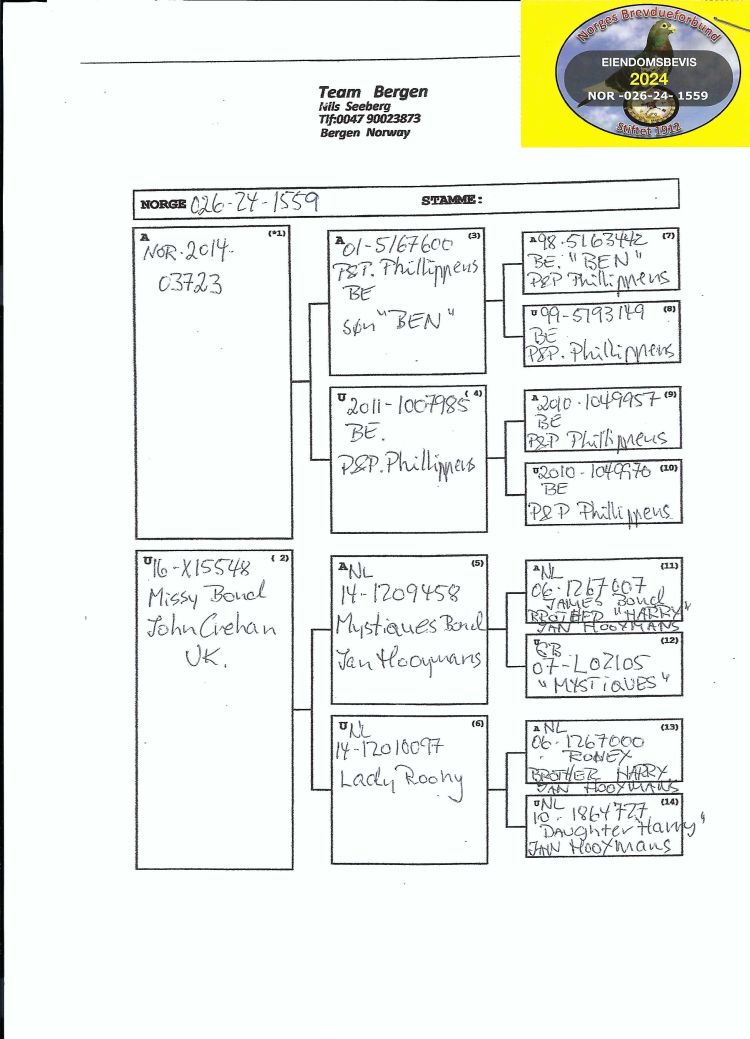 Norges Brevdueforbund
EIENDOMSBEVIS
2024
NOR -026-24- 1559
Stiftet 1912
Team Bergen
Nils Seeberg
Tlf:0047 90023873
Bergen Norway
NORGE 026-24-1559 STAMME:
A (*1)
NOR.2014-
03723
A 01-5167600 (3)
P&P. Phillippens
BE
søn "BEN"
A 98-5163442 (7)
BE. "BEN"
P&P Phillippens
U 99-5193149 (8)
BE
P&P. Phillippens
U 2011-1007985 (4)
BE.
P&P. Phillippens
A 2010-1049957 (9)
BE
P&P Phillippens
U 2010-1049970 (10)
BE
P&P Phillippens
U 16-X15548 (2)
Missy Bond
John Crehan
UK.
A NL (5)
14-1209458
Mystiques Bond
Jan Hooymans
A NL (11)
06-1267007
JAMES Bond
BROTHER "HARRY"
JAN HOOYMANS
U GB (12)
07-L02105
"MYSTIQUES"
U NL (6)
14-12010097
Lady Roony
A NL (13)
06-1267000
RONEY
BROTHER HARRY
JAN HOOYMANS
U NL (14)
10-1864727
Daughter "Harry"
JAN HOOYMANS